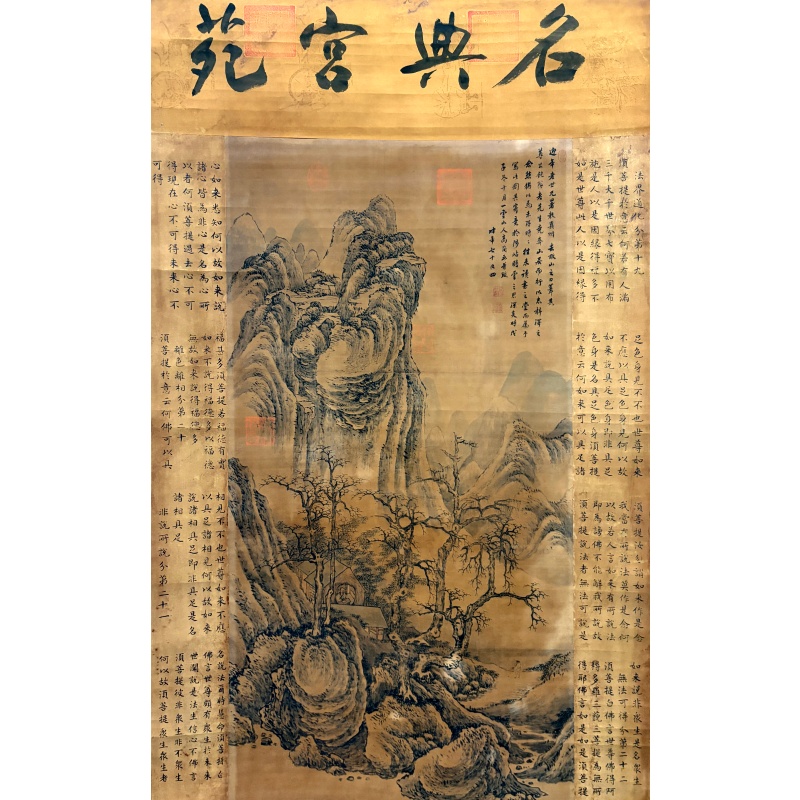 名典宮苑
心如來悉知何以故如來說
諸心皆為非心是名為心所
以者何須菩提過去心不可
得現在心不可得未來心不
可得
法界通化分第十九
須菩提於意云何若有人滿
三千大千世界七寶以用布
施是人以是因緣得福多不
如是世尊此人以是因緣得
福甚多須菩提若福德有實
如來不說得福德多以福德
無故如來說得福德多
離色離相分第二十
須菩提於意云何佛可以具
足色身見不不也世尊如來
不應以具足色身見何以故
如來說具足色身即非具足
色身是名具足色身須菩提
於意云何如來可以具足諸
相見不不也世尊如來不應
以具足諸相見何以故如來
說諸相具足即非具足是名
諸相具足
非說所說分第二十一
須菩提汝勿謂如來作是念
我當有所說法莫作是念何
以故若人言如來有所說法
即為謗佛不能解我所說故
須菩提說法者無法可說是
名說法爾時慧命須菩提白
佛言世尊頗有眾生於未來
世聞說是法生信心不佛言
須菩提彼非眾生非不眾生
何以故須菩提眾生眾生者
如來說非眾生是名眾生
無法可得分第二十二
須菩提白佛言世尊佛得阿
耨多羅三藐三菩提為無所
得耶佛言如是如是須菩提
時年七十又四